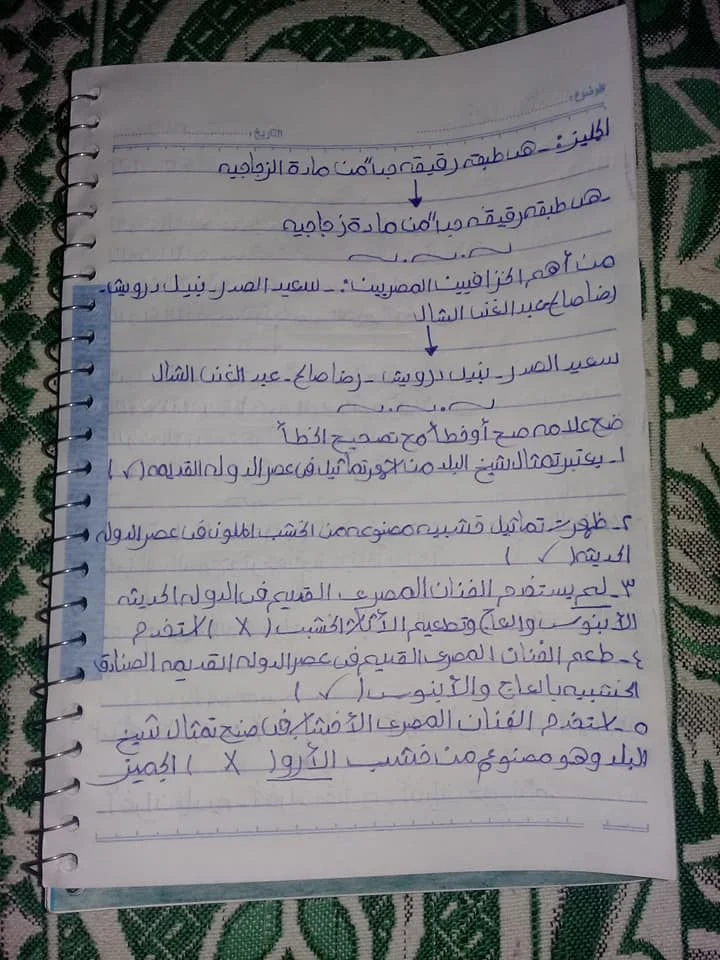 الموضوع:
التاريخ:
الجليز:- هى طبقه رقيقه جدا" من مادة الزجاجيه
- هى طبقه رقيقه جدا" من مادة زجاجيه
من أهم الخزافيين المصريين:- سعيد الصدر - نبيل درويش -
رضا صالح عبد الغنى الشال
سعيد الصدر - نبيل درويش - رضا صالح - عبد الغنى الشال
ضع علامه صح أو خطأ مع تصحيح الخطأ
١- يعتبر تمثال شيخ البلد من اشهر تماثيل فى عصر الدوله القديمه (✓)
٢- ظهرت تماثيل خشبيه مصنوعه من الخشب الملون فى عصر الدوله
الحديثه ( ✓ )
٣- لم يستخدم الفنان المصرى القديم فى الدوله الحديثه
الأبنوس والعاج وتطعيم الأثاث الخشب ( X ) استخدم
٤- طعم الفنان المصرى القديم فى عصر الدوله القديمه الصنادق
الخشبيه بالعاج والأبنوس ( ✓ )
٥- استخدم الفنان المصرى الأخشاب فى صنع تمثال شيخ
البلد وهو مصنوع من خشب الأرو ( X ) الجميز